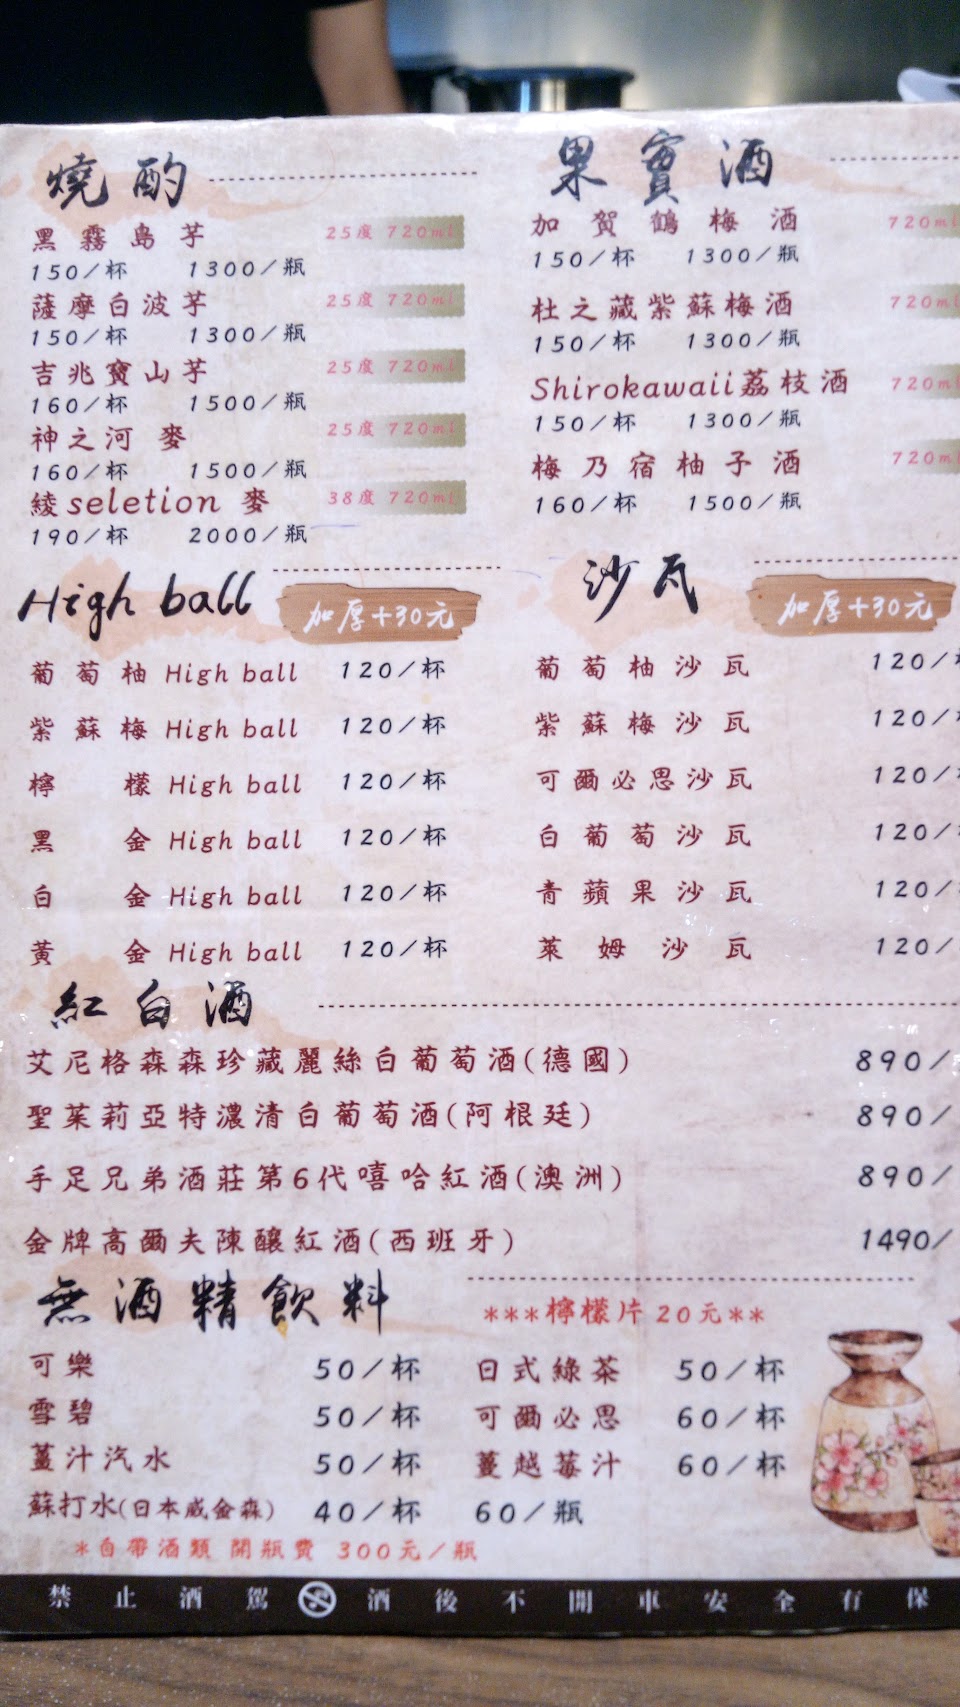 燒酌
黑霧島芋 25度 720ml
150/杯 1300/瓶
薩摩白波芋 25度 720ml
150/杯 1300/瓶
吉兆寶山芋 25度 720ml
160/杯 1500/瓶
神之河 麥 25度 720ml
160/杯 1500/瓶
綾seletion 麥 38度 720ml
190/杯 2000/瓶
果實酒
加賀鶴梅酒 720ml
150/杯 1300/瓶
杜之藏紫蘇梅酒 720ml
150/杯 1300/瓶
Shirokawaii荔枝酒 720ml
150/杯 1300/瓶
梅乃宿柚子酒 720ml
160/杯 1500/瓶
High ball 加厚+30元
葡萄柚 High ball 120/杯
紫蘇梅 High ball 120/杯
檸檬 High ball 120/杯
黑金 High ball 120/杯
白金 High ball 120/杯
黃金 High ball 120/杯
沙瓦 加厚+30元
葡萄柚沙瓦 120/
紫蘇梅沙瓦 120/
可爾必思沙瓦 120/
白葡萄沙瓦 120/
青蘋果沙瓦 120/
萊姆沙瓦 120/
紅白酒
艾尼格森森珍藏麗絲白葡萄酒(德國) 890/
聖茱莉亞特濃清白葡萄酒(阿根廷) 890/
手足兄弟酒莊第6代嘻哈紅酒(澳洲) 890/
金牌高爾夫陳釀紅酒(西班牙) 1490/
無酒精飲料 ***檸檬片 20元**
可樂 50/杯 日式綠茶 50/杯
雪碧 50/杯 可爾必思 60/杯
薑汁汽水 50/杯 蔓越莓汁 60/杯
蘇打水(日本威金森) 40/杯 60/瓶
*自帶酒類 開瓶費 300元/瓶
禁止酒駕 酒後不開車安全有保